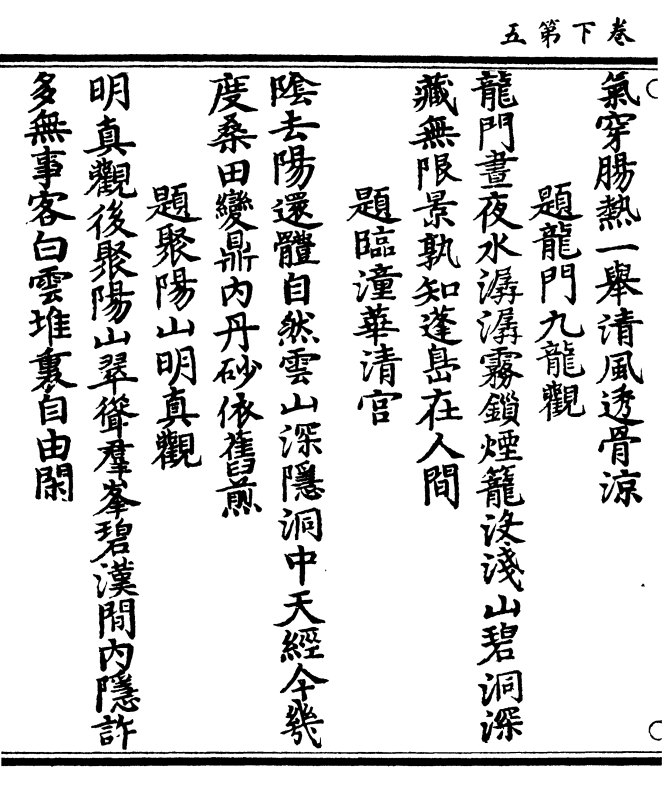 卷下第五
氣穿腸熱一舉清風透骨涼
題龍門九龍觀
龍門晝夜水潺潺霧鎖煙籠浅淺山碧洞深
藏無限景孰知蓬島在人間
題臨潼華清宮
陰去陽還體自然雲山深隱洞中天經今幾
度桑田變鼎內丹砂依舊煎
題聚陽山明真觀
明真觀後聚陽山翠聳羣峯碧漢間內隱許
多無事客白雲堆裏自由閑